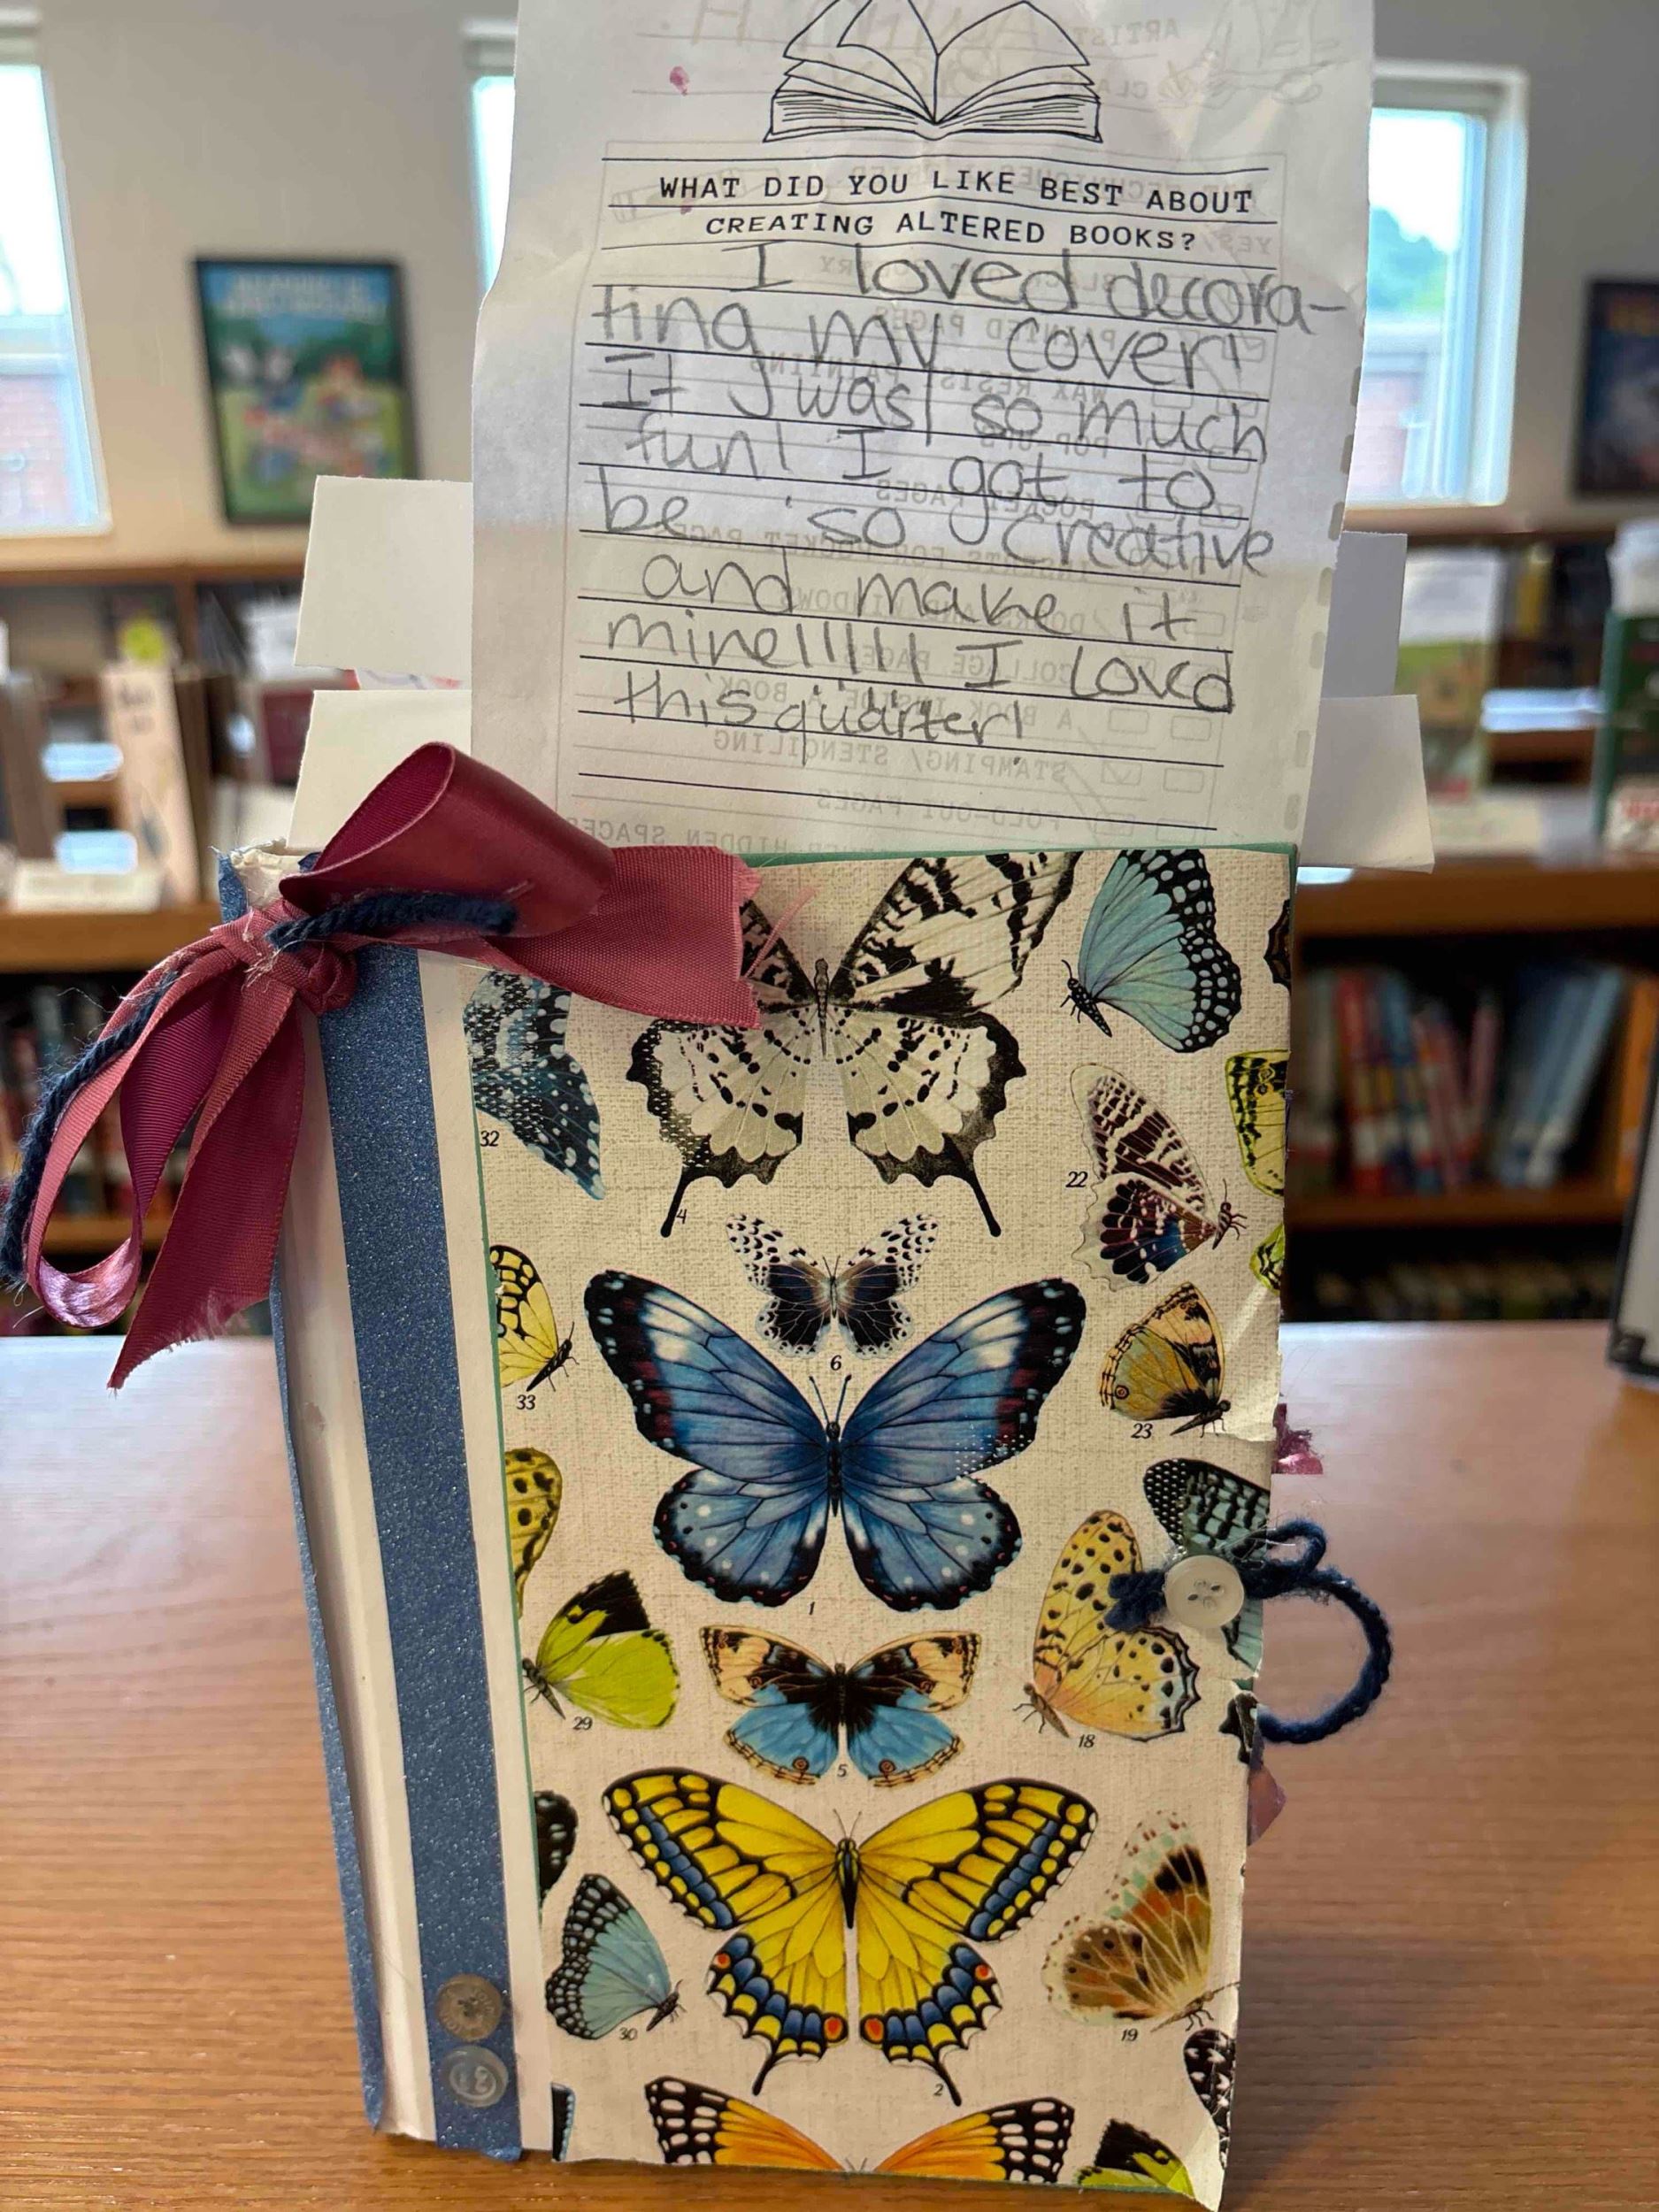 WHAT DID YOU LIKE BEST ABOUT
CREATING ALTERED BOOKS?
I loved decora-
ting my cover!
It was so much
fun! I got to
be so creative
and make it
mine!!!!! I loved
this quarter!
32
4
22
6
33
23
1
29
18
5
30
19
2